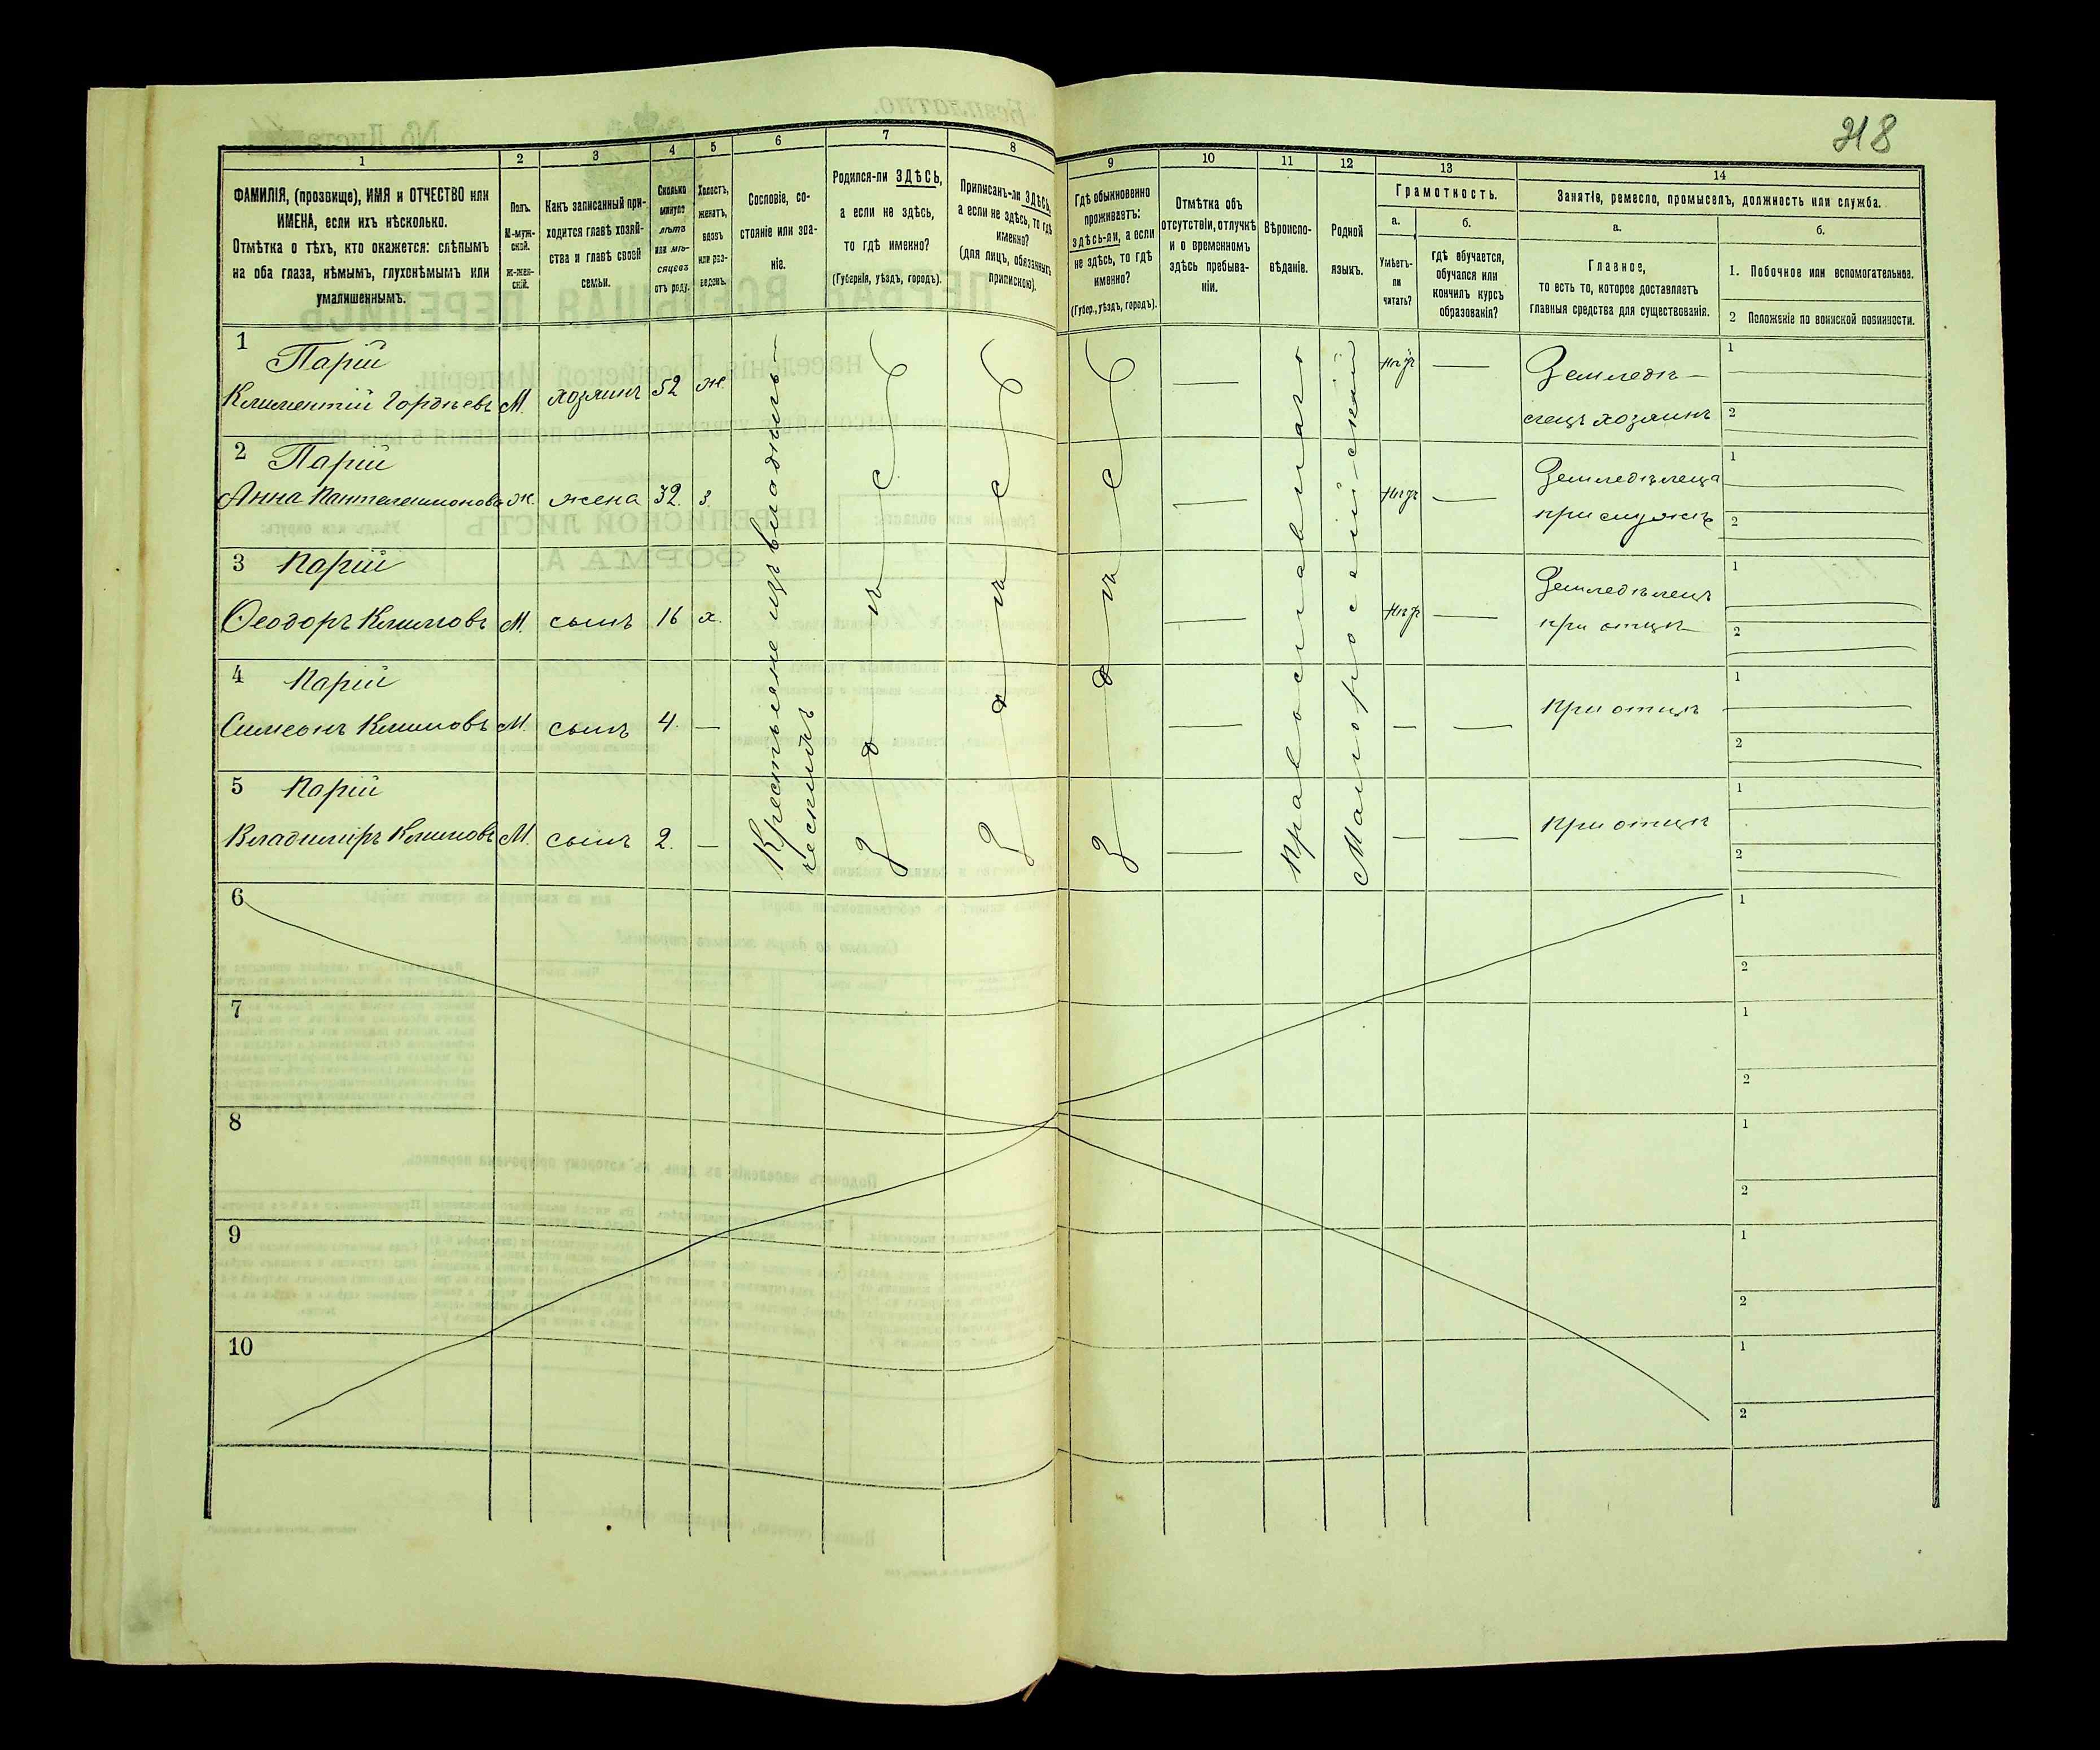 218
1
2
3
4
5
6
7
8
9
10
11
12
13
14
ФАМИЛІЯ, (прозвище), ИМЯ и ОТЧЕСТВО или
ИМЕНА, если ихъ нѣсколько.
Отмѣтка о тѣхъ, кто окажется: слѣпымъ
на оба глаза, нѣмымъ, глухонѣмымъ или
умалишеннымъ.
Полъ.
М-муж-
ской.
ж-жен-
скій.
Какъ записанный при-
ходится главѣ хозяй-
ства и главѣ своей
семьи.
Сколько
минуло
лѣтъ
или мѣ-
сяцевъ
отъ роду.
Холостъ,
женатъ,
вдовъ
или раз-
веденъ.
Сословіе, со-
стояніе или зва-
ніе.
Родился-ли ЗДѢСЬ,
а если не здѣсь,
то гдѣ именно?
(Губернія, уѣздъ, городъ).
Приписанъ-ли ЗДѢСЬ,
а если не здѣсь, то гдѣ
именно?
(для лицъ, обязанныхъ
припискою).
Гдѣ обыкновенно
проживаетъ:
здѣсь-ли, а если
не здѣсь, то гдѣ
именно?
(Губер., уѣздъ, городъ).
Отмѣтка объ
отсутствіи, отлучкѣ
и о временномъ
здѣсь пребыва-
ніи.
Вѣроиспо-
вѣданіе.
Родной
языкъ.
Грамотность.
а.
Умѣетъ-
ли
читать?
б.
гдѣ обучается,
обучался или
кончилъ курсъ
образованія?
Занятіе, ремесло, промыселъ, должность или служба.
а.
Главное,
то есть то, которое доставляетъ
главныя средства для существованія.
б.
1. Побочное или вспомогательное.
2 Положеніе по воинской повинности.
1
Парій
Климентій Гордѣевъ М. хозяинъ 52 ж.
нѣтъ
Земледѣ-
лецъ хозяинъ
1
2
2
Парій
Анна Пантелеимонова ж. жена 32 з.
нѣтъ
Земледѣлеца
при мужѣ
1
2
3
Парій
Ѳеодоръ Климовъ М. сынъ 16 х.
нѣтъ
Земледѣлецъ
при отцѣ
1
2
4
Парій
Симеонъ Климовъ М. сынъ 4. —
При отцѣ
1
2
5
Парій
Владиміръ Климовъ М. сынъ 2. —
При отцѣ
1
2
Крестьяне изъ владѣль-
ческихъ
Здѣсь
Здѣсь
Здѣсь
Православнаго
Малороссійскій
6
1
2
7
1
2
8
1
2
9
1
2
10
1
2